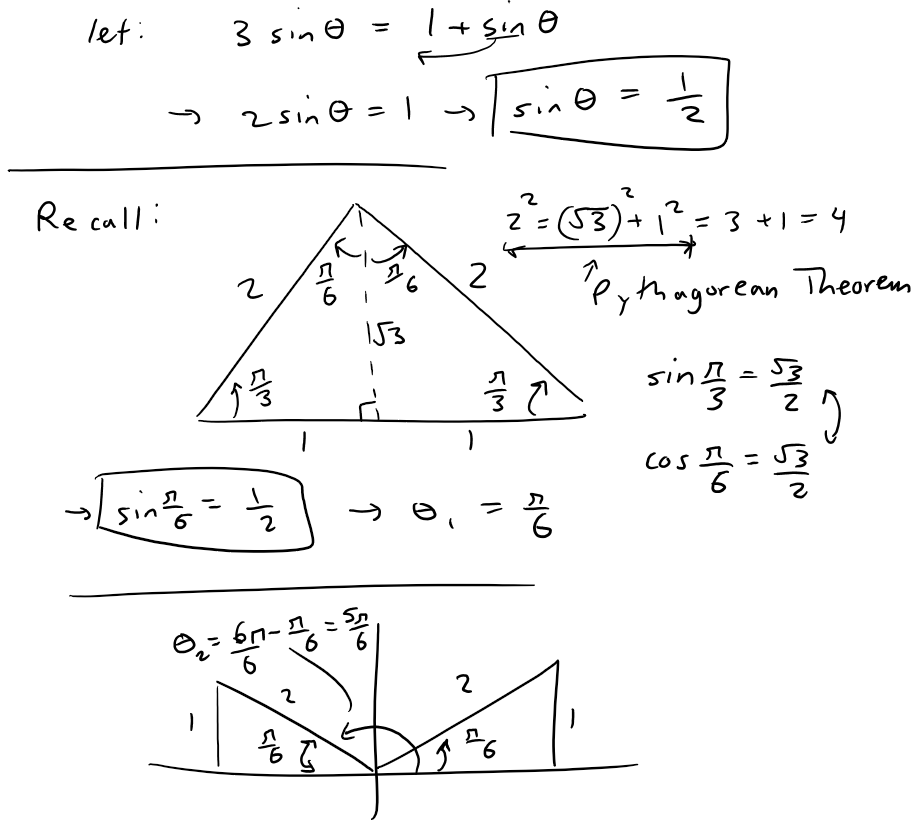 let: 3 sin θ = 1 + sin θ
→ 2 sin θ = 1 → sin θ = 1/2
Recall:
2² = (√3)² + 1² = 3 + 1 = 4
↑ Pythagorean Theorem
π/6 π/6
2 2
√3
π/3 π/3
1 1
sin π/3 = √3/2
cos π/6 = √3/2
→ sin π/6 = 1/2 → θ₁ = π/6
θ₂ = 6π/6 - π/6 = 5π/6
2 2
1 π/6 π/6 1